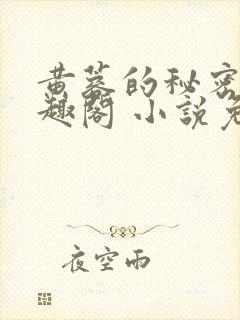 黄蓉的秘密
趣阁 小說免
夜空雨